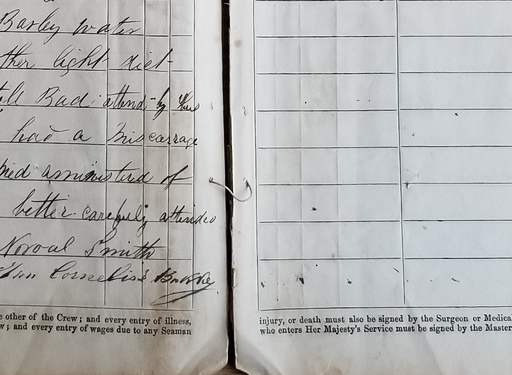 Barley water
ther light diet
ill Bad attend by
had a Miscarrage
ined aministerd of
better carefully attended
Norval Smith
Cornelius
e other of the Crew; and every entry of illness,
w; and every entry of wages due to any Seaman
injury, or death must also be signed by the Surgeon or Medica
who enters Her Majesty's Service must be signed by the Master